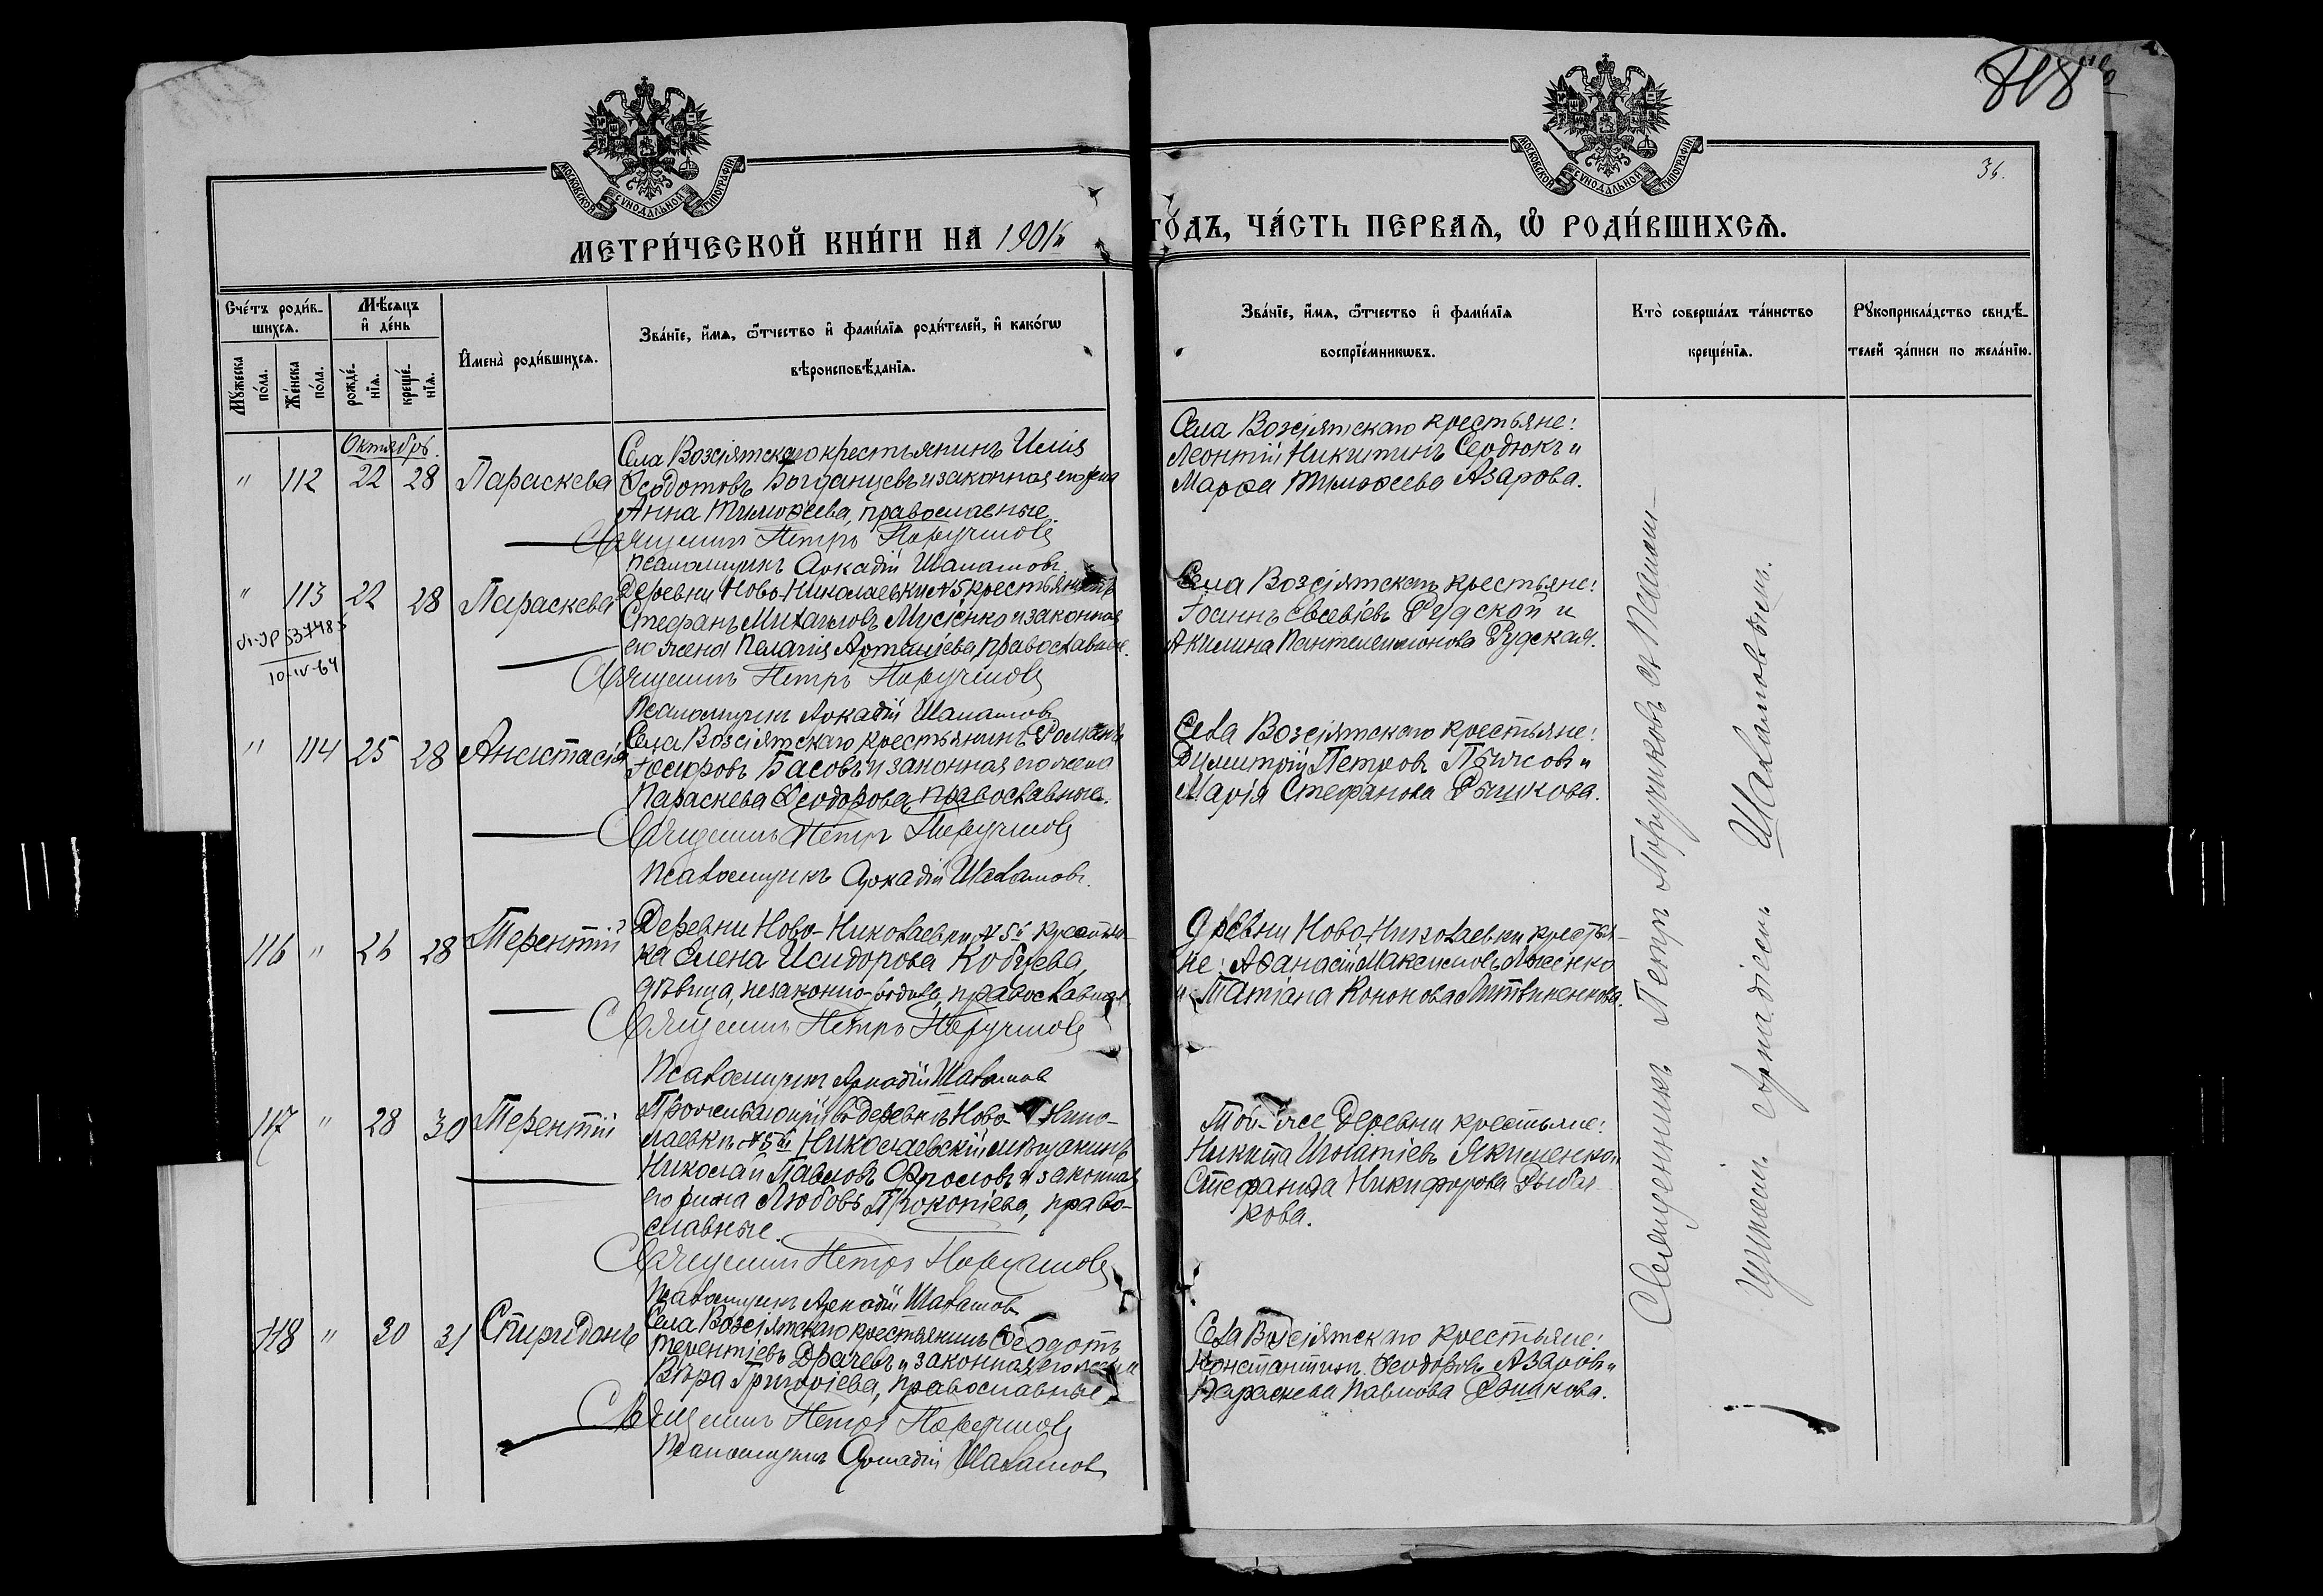 818
36.
МОСКОВСКОЙ СѴНОДАЛЬНОЙ ТИПОГРАФІИ
МОСКОВСКОЙ СѴНОДАЛЬНОЙ ТИПОГРАФІИ
МЕТРИ́ЧЕСКОЙ КНИ́ГИ НА 1901й
ГО́ДЪ, ЧА́СТЬ ПЕ́РВАѦ, Ѽ РОДИ́ВШИХСѦ.
Сче́тъ роди́в-
шихсѧ.
Мꙋ́жеска по́ла.
Же́нска по́ла.
Мѣ́сѧцъ
и҆ де́нь
рожде́-
нїѧ.
креще́-
нїѧ.
И҆мена̀ роди́вшихсѧ.
Зва́нїе, и҆́мѧ, ѻ҆́тчество и҆ фами́лїѧ роди́телей, и҆ како́гѡ
вѣроисповѣ́данїѧ.
Зва́нїе, и҆́мѧ, ѻ҆́тчество и҆ фами́лїѧ
воспрїе́мникѡвъ.
Кто̀ соверша́лъ та́инство
креще́нїѧ.
Рꙋкоприкла́дство свидѣ́-
телей за́писи по жела́нїю.
Октябрь.
" 112 22 28 Параскева
Села Возсіятскаго крестьянинъ Илія
Ѳеодотовъ Богданцевъ и законная его жена
Анна Тимоѳеева, православные.
Священникъ Петръ Поручиковъ
Псаломщикъ Аркадій Шаламовъ.
Села Возсіятскаго крестьяне:
Леонтій Никитинъ Сердюкъ и
Марѳа Тимоѳеева Азарова.
" 113 22 28 Параскева
10-IV-64
Деревни Ново-Николаевки №5 крестьянинъ
Стефанъ Михаиловъ Мусіенко и законная
его жена Пелагія Артеміева, православные.
Священникъ Петръ Поручиковъ
Псаломщикъ Аркадій Шаламовъ
Села Возсіятскаго крестьяне:
Іоаннъ Евсевіевъ Рудской и
Акилина Пантелеимонова Рудская.
" 114 25 28 Анастасія
Села Возсіятскаго крестьянинъ Романъ
Іосифовъ Басовъ и законная его жена
Параскева Ѳеодорова, православные.
Священникъ Петръ Поручиковъ
Псаломщикъ Аркадій Шаламовъ.
Села Возсіятскаго крестьяне:
Димитрій Петровъ и
Марія Стефанова Рышкова.
116 " 26 28 Терентій
Деревни Ново-Николаевки №5й крестьян-
ка Елена Исидорова Кобцева,
дѣвица, незаконно-родила, православная
Священникъ Петръ Поручиковъ
Псаломщикъ Аркадій Шаламовъ
Деревни Ново-Николаевки крестья-
не: Аѳанасій Максимовъ
и Татіана Кононова Литвиненкова.
117 " 28 30 Терентій
Проживающій въ деревнѣ Ново-Нико-
лаевкѣ №5й Николаевскій мѣщанинъ
Николай Павловъ Фроловъ и законная
его жена Любовь Прокопіева, право-
славные.
Священникъ Петръ Поручиковъ
Псаломщикъ Аркадій Шаламовъ
Той-же деревни крестьяне:
Никита Игнатіевъ Якименко и
Стефанида Никифорова Рыбал-
кова.
118 " 30 31 Спиридонъ
Села Возсіятскаго крестьянинъ Ѳеодотъ
Терентіевъ Драчевъ и законная его жена
Вѣра Григоріева, православные
Священникъ Петръ Поручиковъ
Псаломщикъ Аркадій Шаламовъ
Села Возсіятскаго крестьяне:
Константинъ Ѳеодоровъ Азаровъ и
Параскева Павлова
Священникъ Петръ Поручиковъ съ псалом-
щикомъ Аркадіемъ Шаламовымъ.